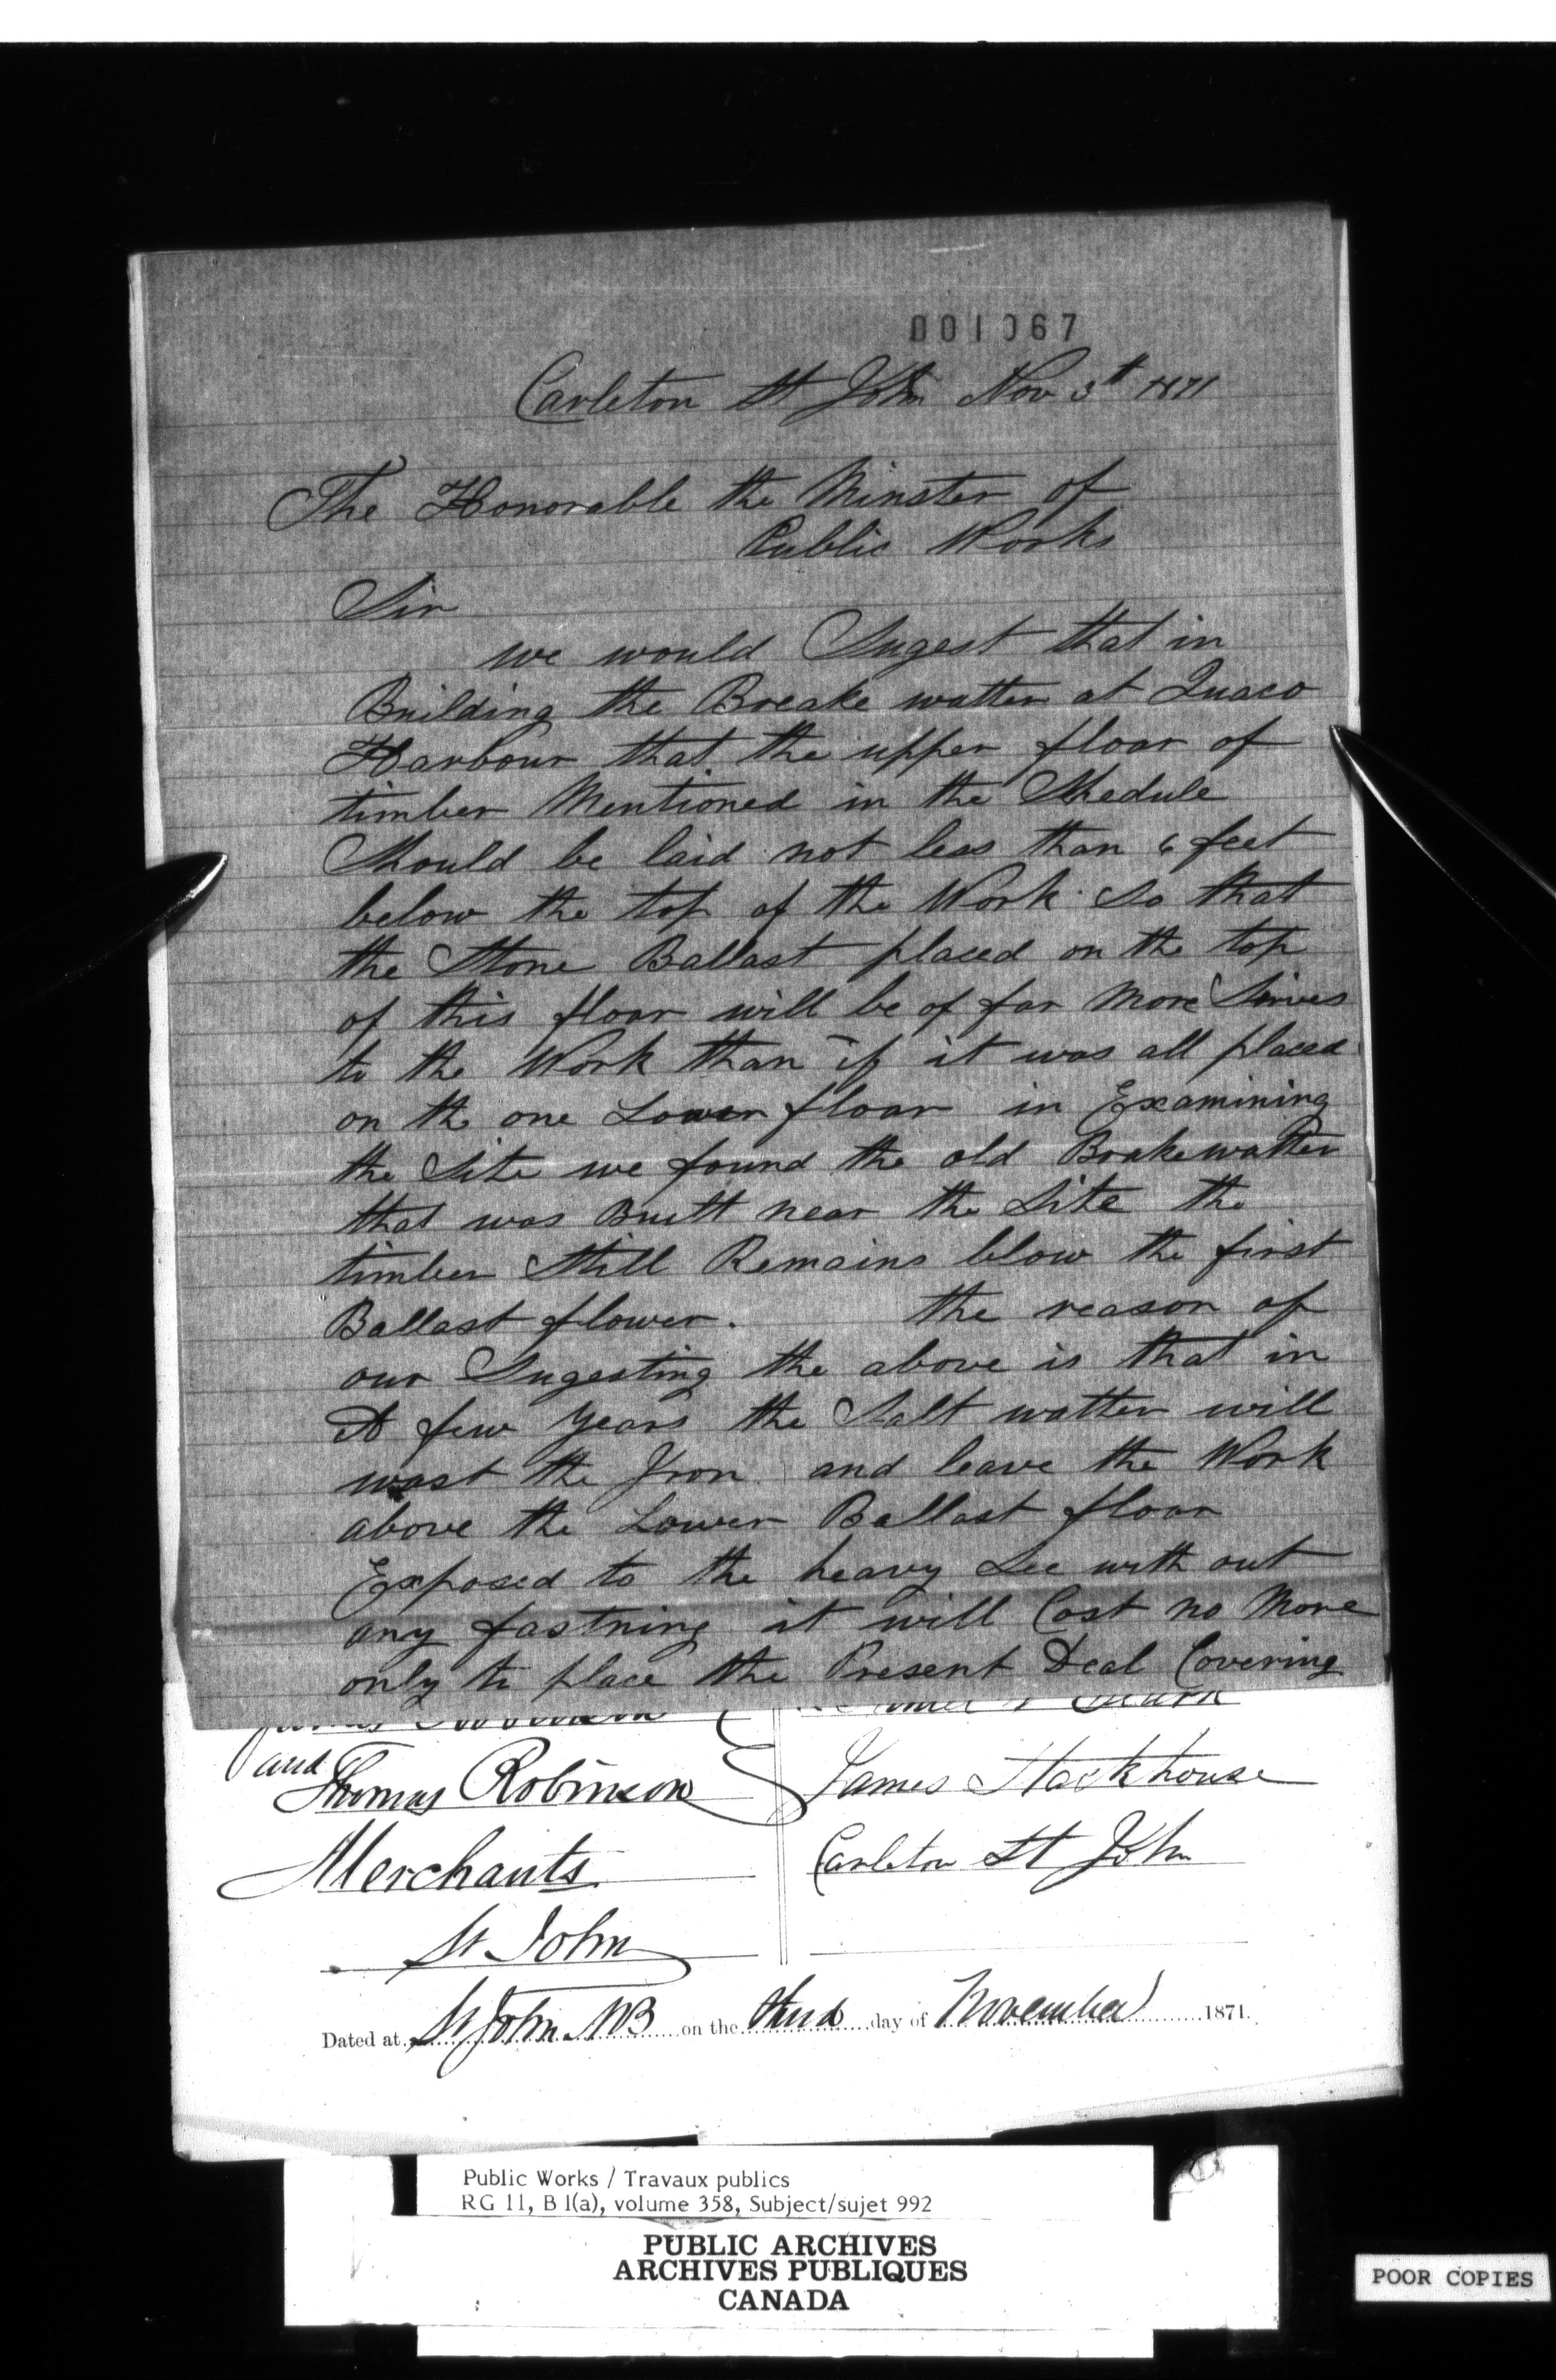 001067
Carleton St John Nov 3th 1871
The Honorable the Minster of
Public Works
Sir
we would Sugest that in
Building the Breake watter at Quaco
Harbour that the upper floar of
timber Mentioned in the Shedule
Should be laid not less than 6 feet
below the top of the Work So that
the Stone Ballast placed on the top
of this floar will be of far More Servies
to the Work than if it was all placed
on the one Lower floar in Examining
the Site we found the old Brakewatter
that was Built near the Site the
timber Still Remains blow the first
Ballast flower. the reason of
our Sugesting the above is that in
A few years the Salt watter will
wast the Iron and leave the Work
above the Lower Ballast floar
Exposed to the heavy See with out
any fastning it will Cost no More
only to place the Present Deal Covering
and Thomas Robinson
Merchants
St John
James Stackhouse
Carleton St John
Dated at St John NB on the third day of November 1871.
Public Works / Travaux publics
RG 11, B 1(a), volume 358, Subject/sujet 992
PUBLIC ARCHIVES
ARCHIVES PUBLIQUES
CANADA
POOR COPIES